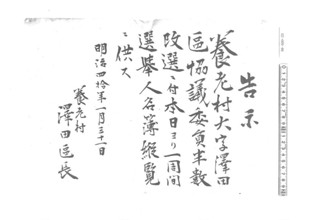 告示
養老村大字澤田
区協議委員半数
改選ニ付本日ヨリ一周間
選挙人名簿縦覧
ニ供ス
明治四拾年一月三十一日
養老村
澤田区長